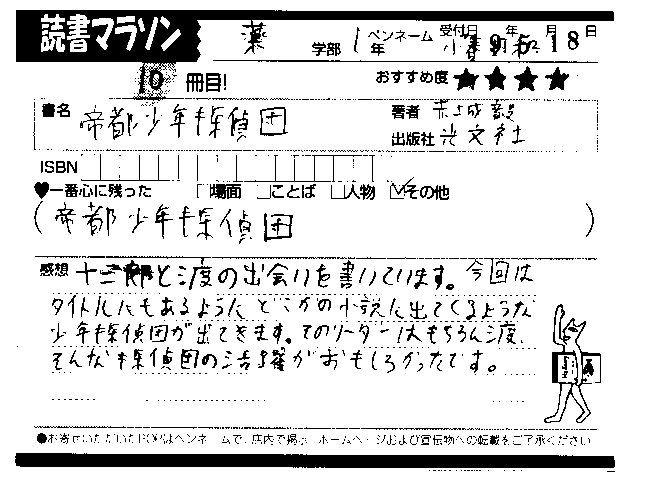 読書マラソン 薬 学部 1年 ペンネーム 小春朝和 受付月 9年5月18日
10冊目! おすすめ度 ★★★★
書名 帝都少年探偵団 著者 赤城毅
出版社 光文社
ISBN
♥一番心に残った □場面 □ことば □人物 ☑その他
(帝都少年探偵団)
感想 十三郎と三渡の出会いを書いています。今回は
タイトルにもあるようにどこかの小説に出てくるような
少年探偵団が出てきます。そのリーダーはもちろん三渡、
そんな探偵団の活躍がおもしろかったです。
●お寄せいただいたPOPはペンネームで、店内で掲示、ホームページおよび宣伝物への転載をご了承ください